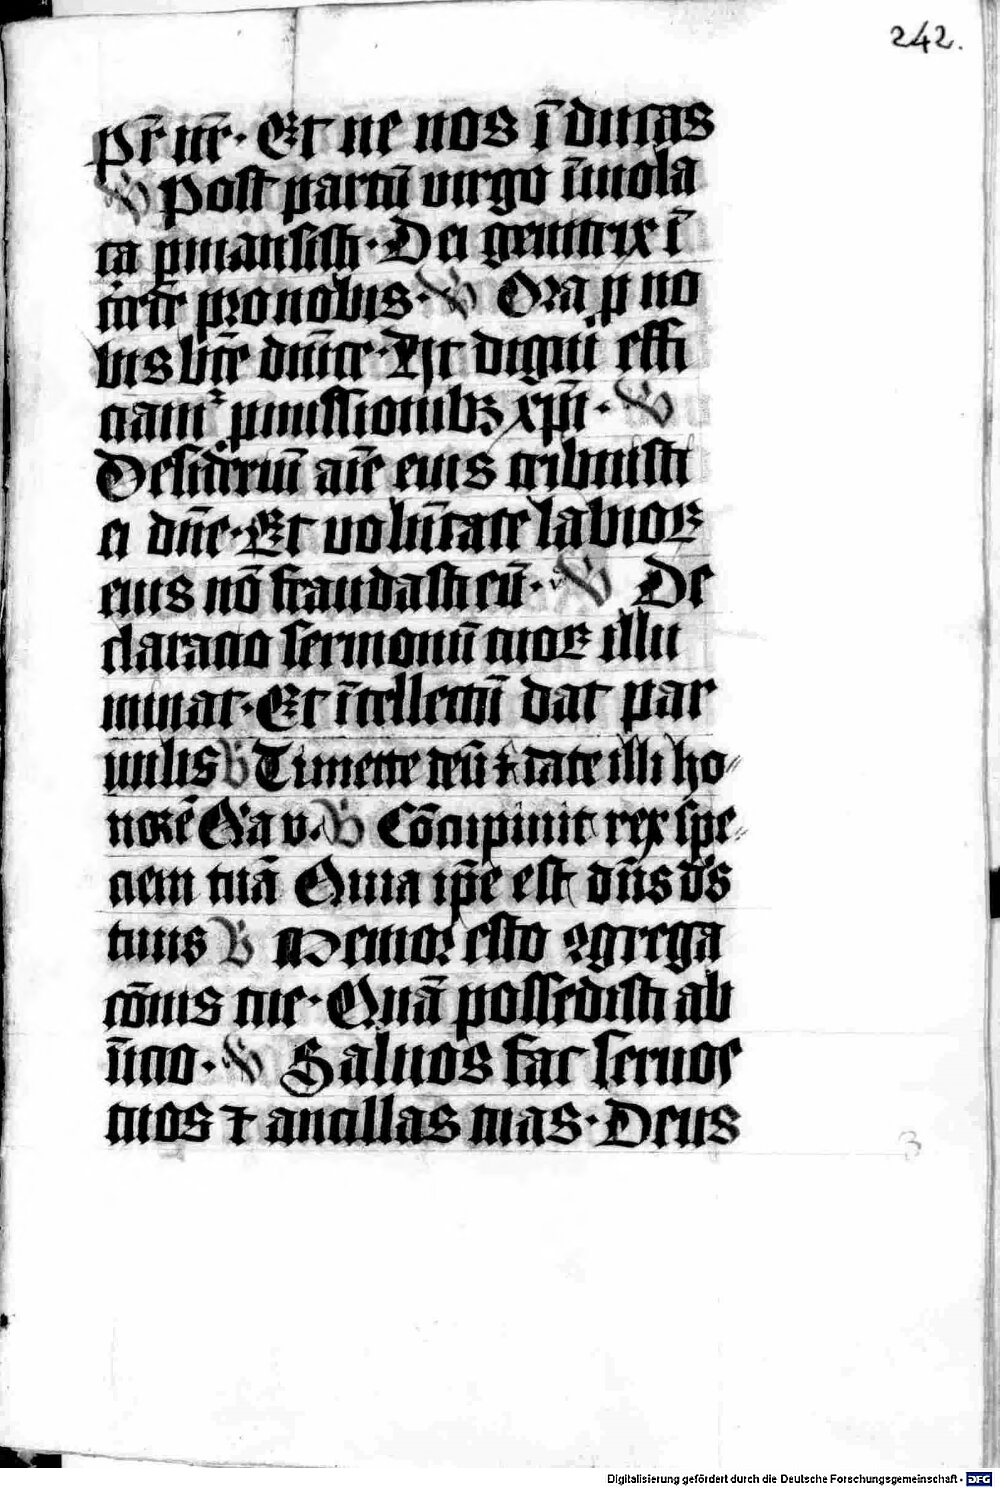 242.
Pr̄ nr̄. Et ne nos ī ducas
℣ Post partū virgo īuiola
ta ꝑmansisti. Dei genitrix ī
t̄cede pro nobis. ℣ Ora ꝓ no
bis bt̄e dn̄ice. Ut digni effi
ciamꝰ ꝓmissionibꝫ xp̄i. ℣
Desideriū aīe eius tribuisti
ei dn̄e. Et volūtate labioꝝ
eius nō fraudasti eū. ℣ De
claracio sermonū tuoꝝ illu
minat. Et ītellectū dat par
uulis ℣ Timete deū ⁊ date illi ho-
norē Q'a v. ℣ Cōcupiuit rex spe-
ciem tuā Quia ip̄e est dn̄s d's
tuus ℣ Memor esto ꝯgrega
cōnis tue. Quā possedisti ab
īicio. ℣ Saluos fac seruos
tuos ⁊ ancillas tuas. Deus
Digitalisierung gefördert durch die Deutsche Forschungsgemeinschaft - DFG